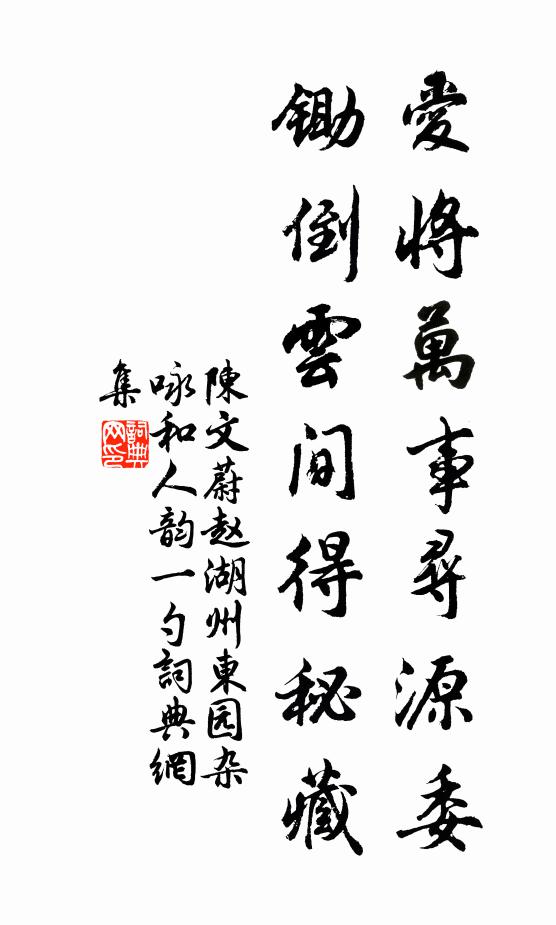 愛將萬事尋源委
鋤倒雲間得秘藏
陳文蔚赵湖州東园杂
咏和人韵一勺詞典網
集
詞典
网印